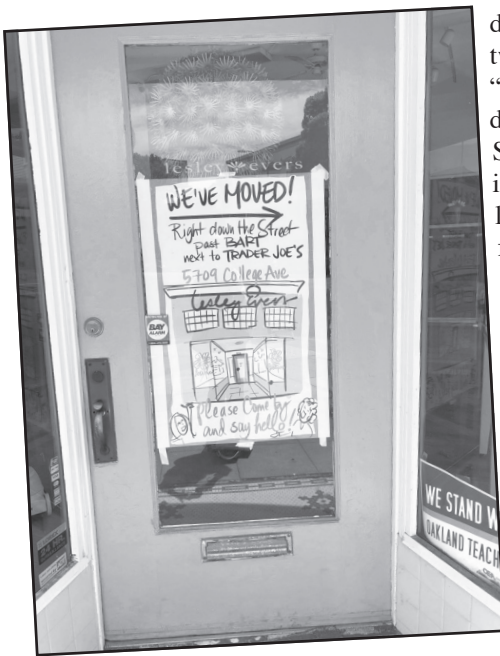 lesley evers
WE'VE MOVED!
Right down the Street
past BART
next to TRADER JOE'S
5709 College Ave
lesley evers
Please Come by
and say hello!!
BAY
ALARM
WE STAND W
OAKLAND TEACH